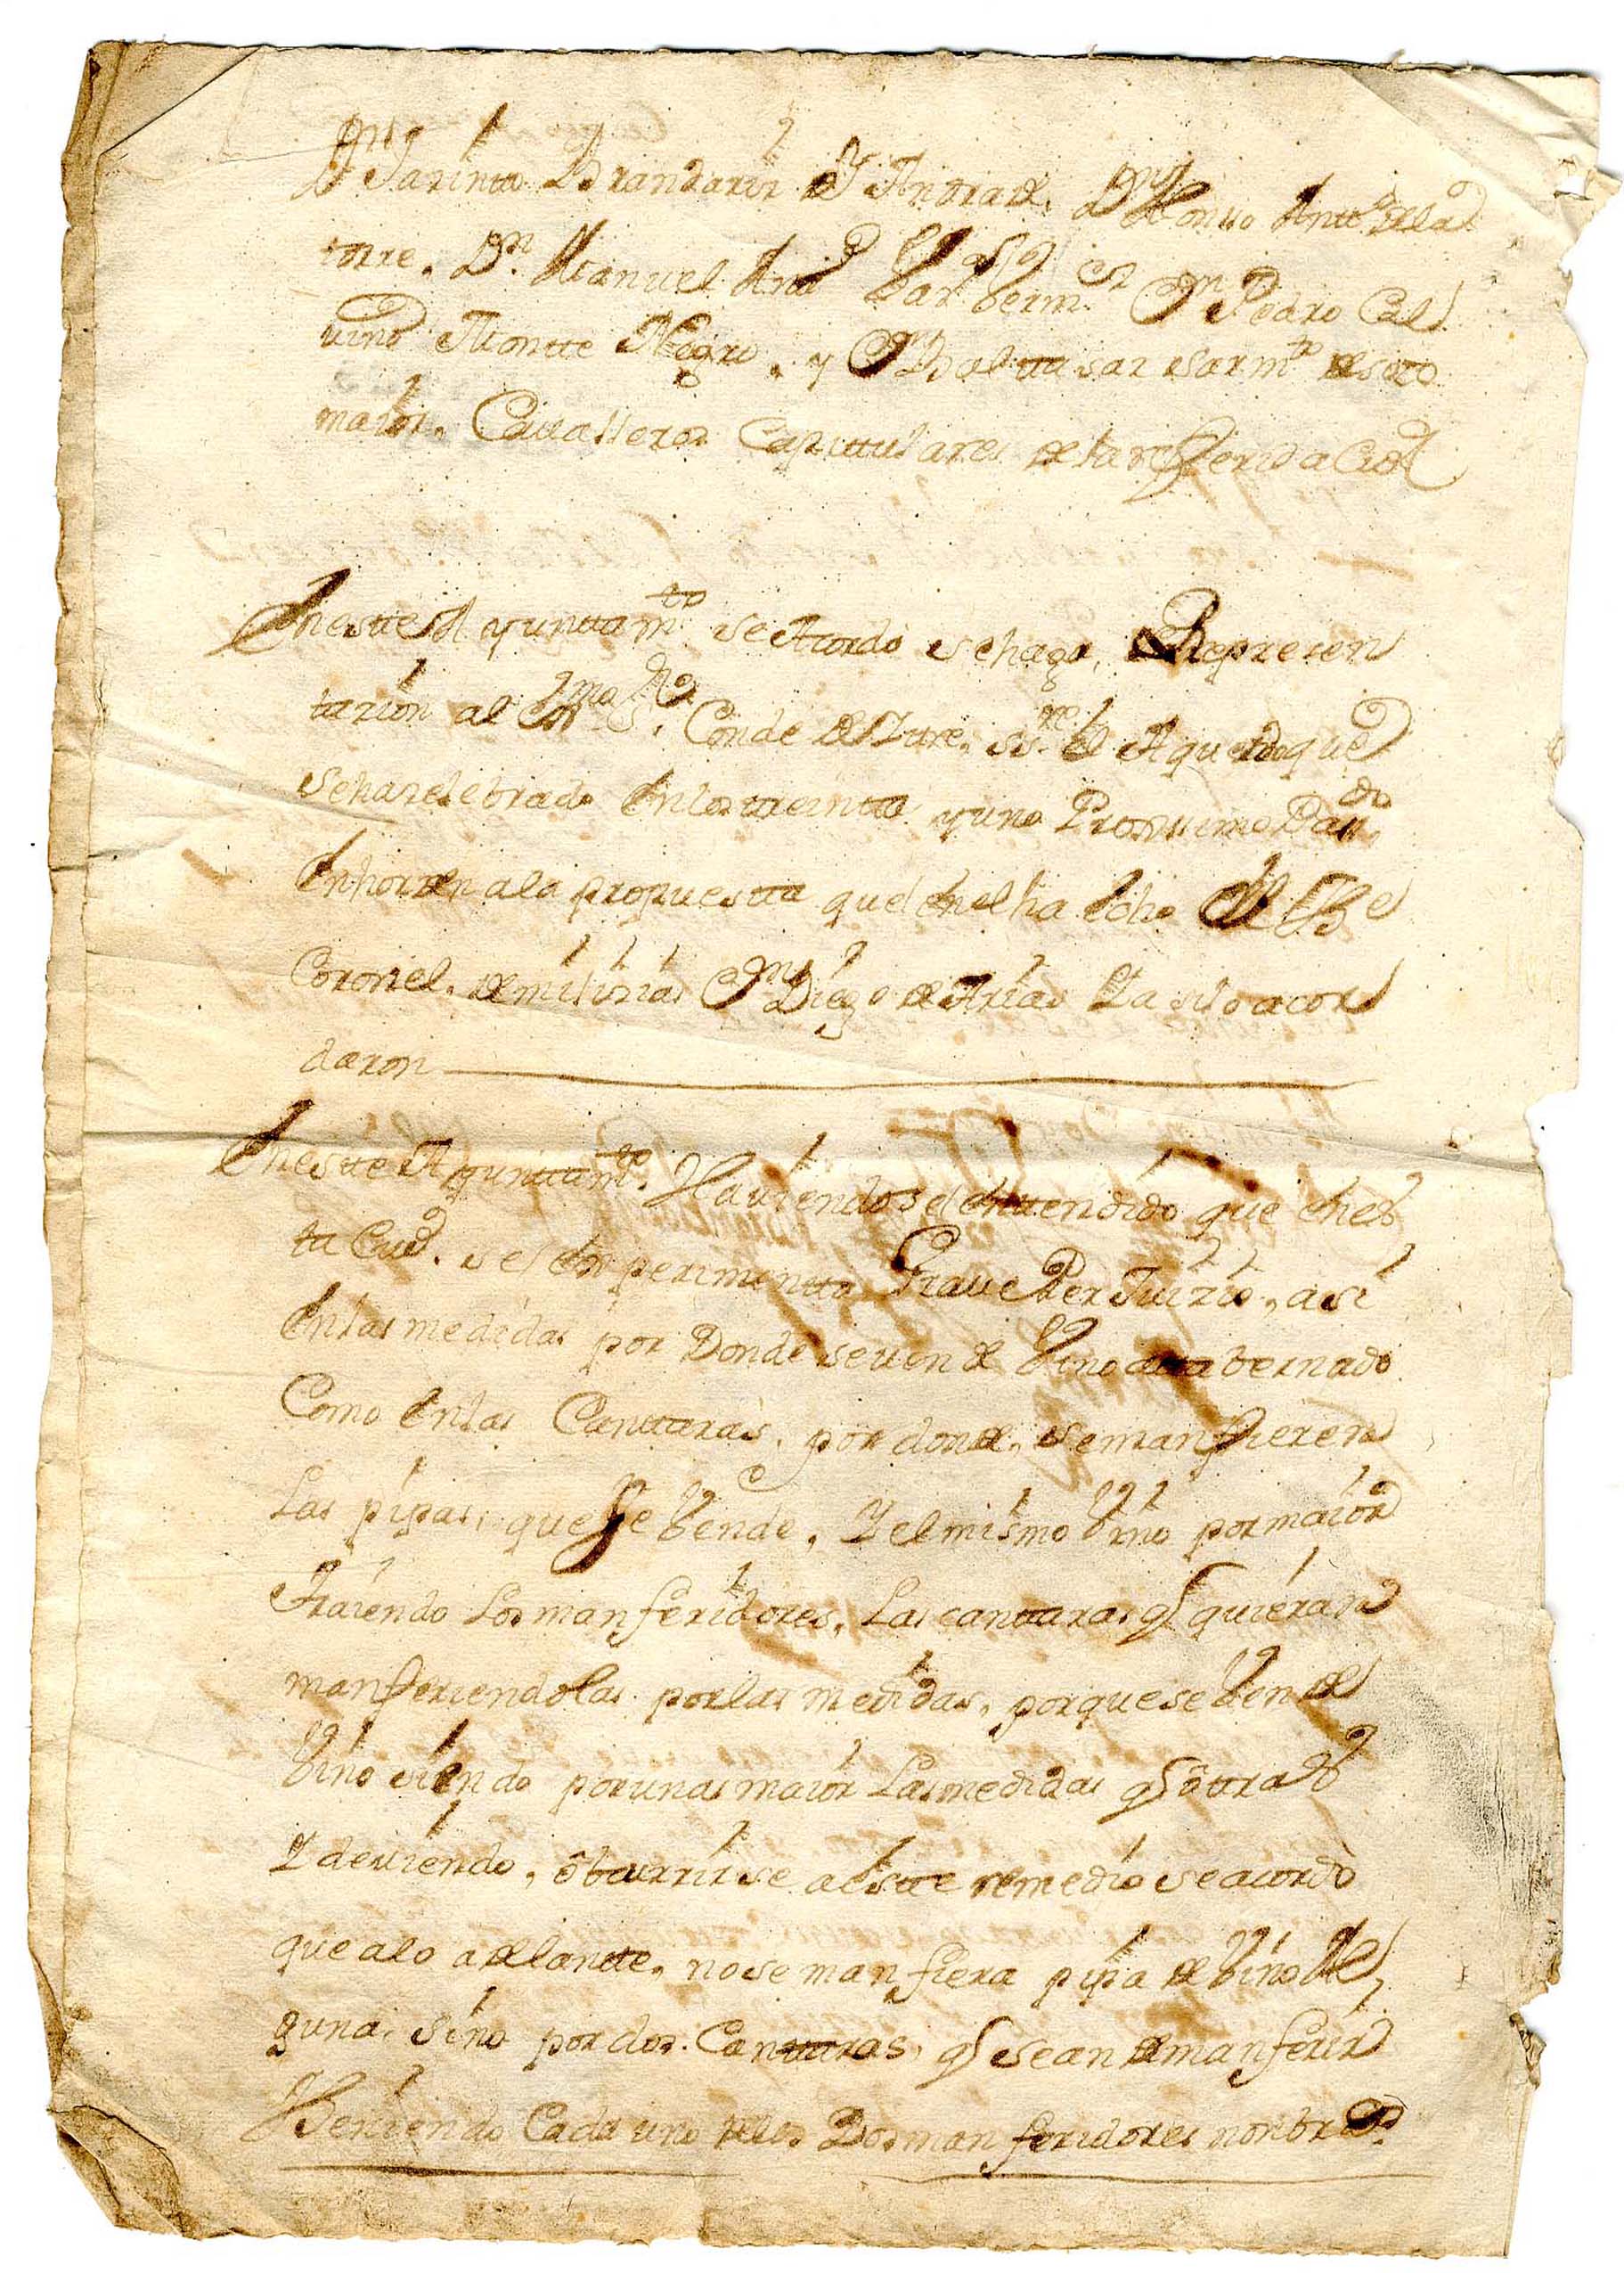 Dn Jazinto Brandariz Y Andrade. Dn Alonso Antto de la
torre. Dn. Manuel Antto Bar Berm.ez Dn Pedro Cal
uino Montte Negro. y Dn Balttasar Sarmto de soto
maior. Caualleros Capittulares de la referida Ciud
En estte Ayunttamto se Acordo se haga, Represen
tazion al Exmo Sr. Conde de Ytre. sre. el Aquerdo que
se ha zelebrado En los treintta y uno Proximo Dando
En horden a la propuestta que en el ha echo el
Coronel. de milizias Dn Diego de Arias Y asi lo acor
daron
En estte Ayunttamto. Hauiendose Enttendido que en es
ta Ciud. se Experimentta Graue Perjuizio, asi
En las medidas por Donde se uende Vino attabernado
Como En las Canttaras, por donde, se manfieren
Las pipas, que se Vende, Y el mismo Vino por maior
Traiendo Los manferidores, Las canttaras q quieran
manferiendolas por las medidas, porque se Vende
Vino siendo por unas maior Las medidas q ôtras
Y deuiendo, ôcurrirse a Estte remedio se acordò
que a lo adelantte, no se manfiera pipa de Vino Al
guna, sino por dos Canttaras, q sean de manferir
Teniendo Cada uno de los Dos manferidores nonbrados